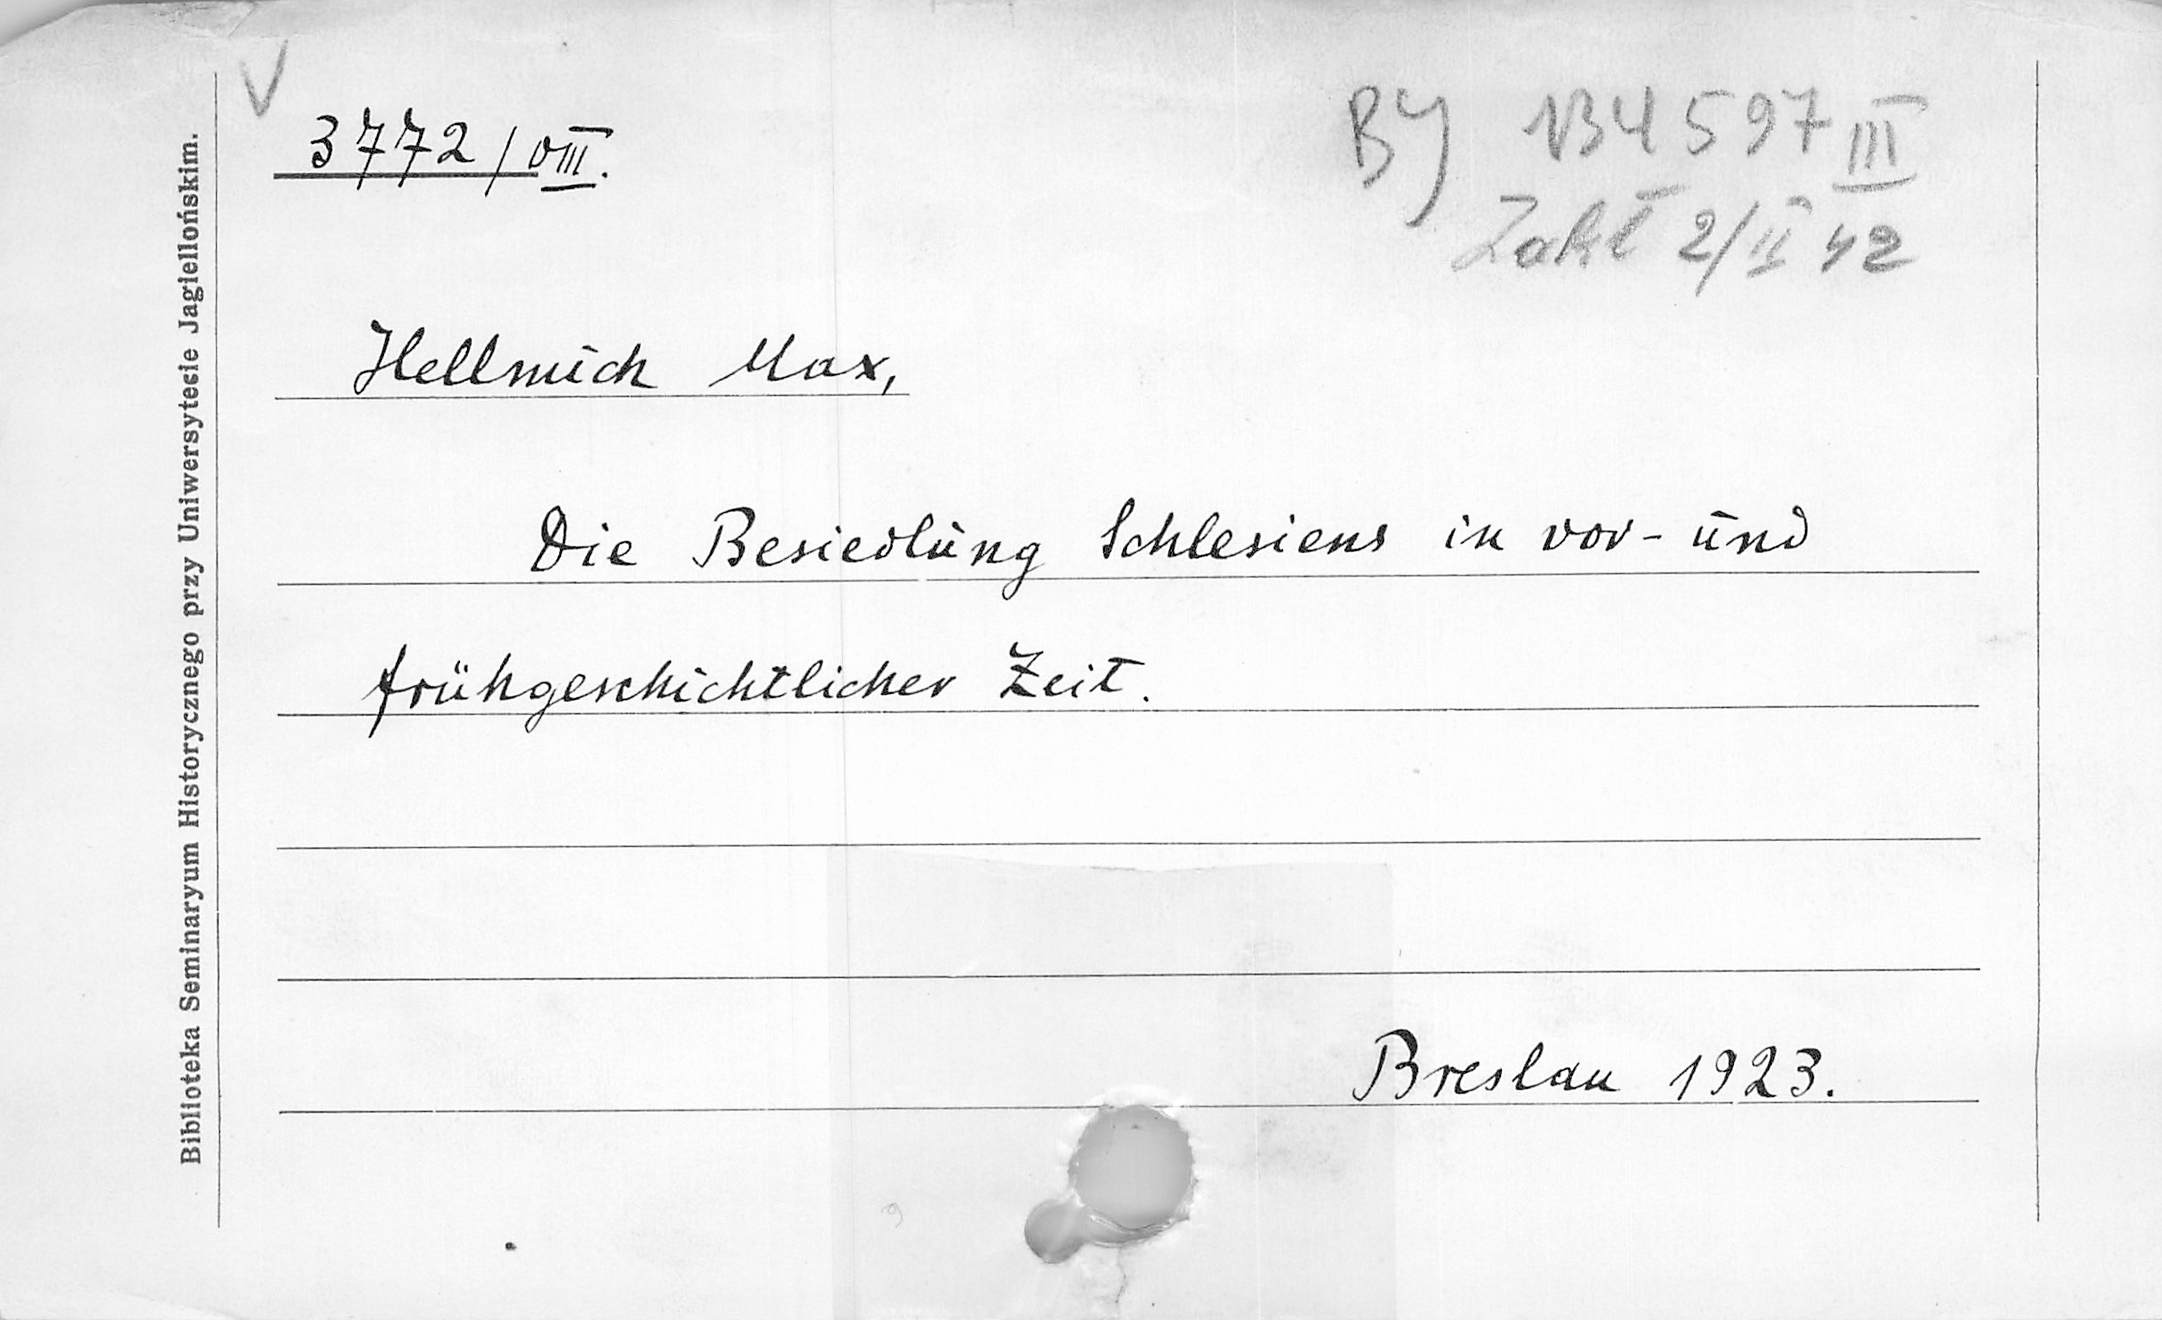 V
3772/VIII.
BJ 134597 III
Zakł 2/II 42
Hellmich Max,
Die Besiedlung Schlesiens in vor- und
frühgeschichtlicher Zeit.
Breslau 1923.
Biblioteka Seminaryum Historycznego przy Uniwersytecie Jagiellońskim.